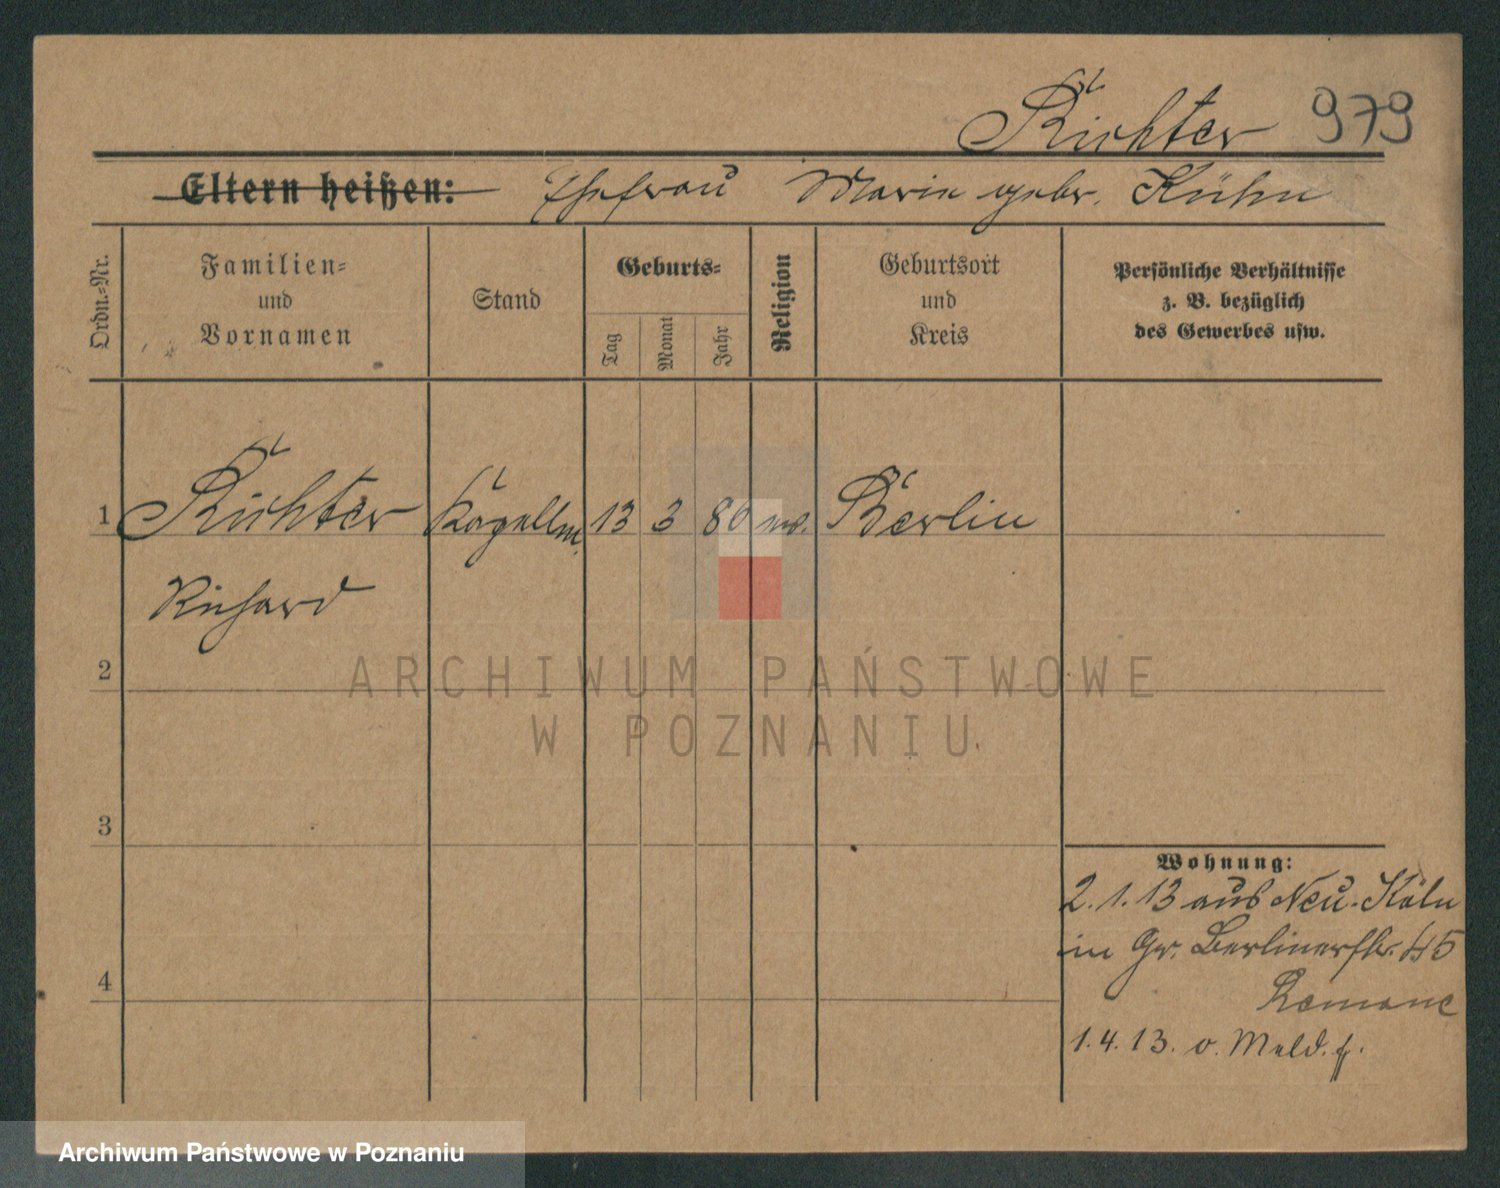 Richter 979
Eltern heißen: Ehefrau Marie gebr. Kühn
Ordn.-Nr.
Familien-
und
Vornamen
Stand
Geburts-
Tag
Monat
Jahr
Religion
Geburtsort
und
Kreis
Persönliche Verhältnisse
z. B. bezüglich
des Gewerbes usw.
1 Richter Kapellm. 13 3 80 ev. Berlin
Richard
2
ARCHIWUM PAŃSTWOWE
W POZNANIU
3
Wohnung:
2. 1. 13 aus Neu-Köln
in Gr. Berlinerstr. 45
4
1. 4. 13. o. Meld. f.
Archiwum Państwowe w Poznaniu